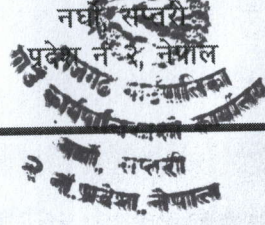 नर्घो, सप्तरी
प्रदेश नं. २, नेपाल
कार्यपालिकाको कार्यालय
सप्तरी
२ नं. प्रदेश, नेपाल